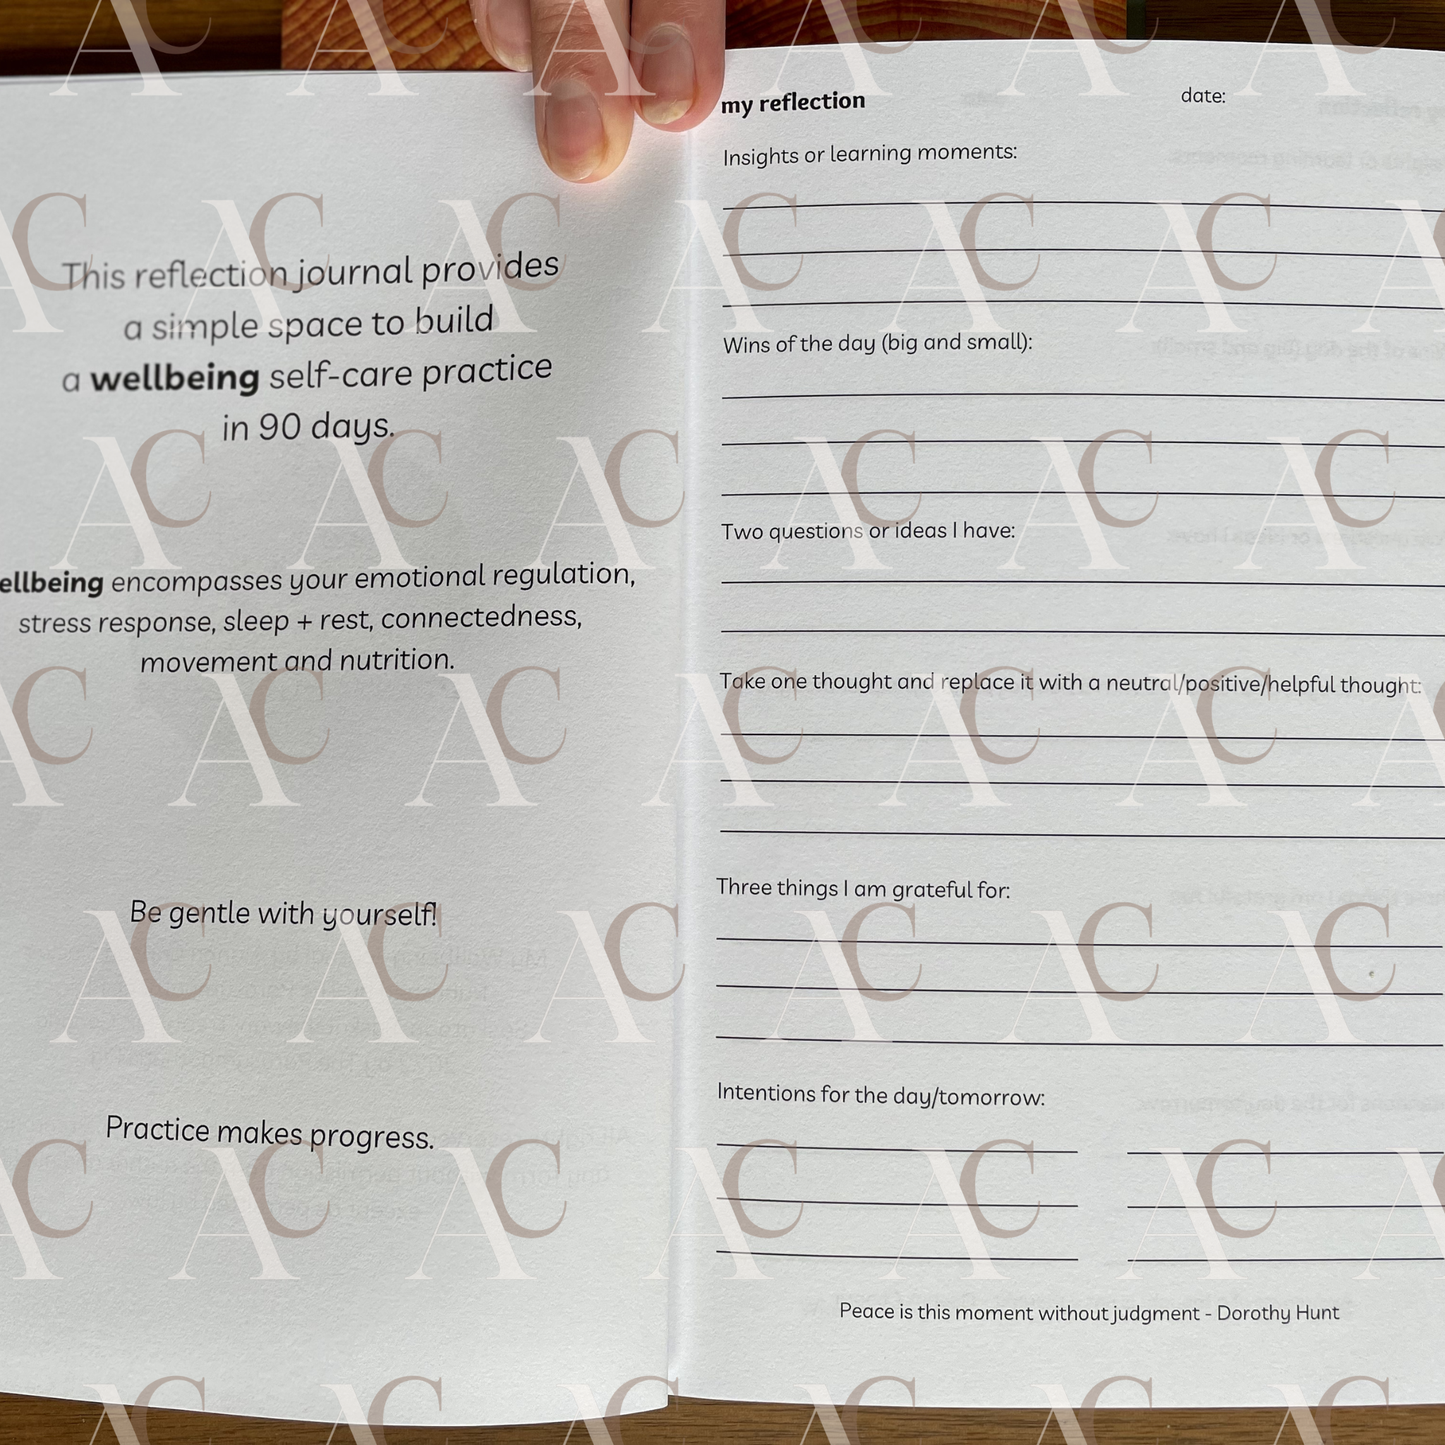 This reflection journal provides
a simple space to build
a wellbeing self-care practice
in 90 days.
ellbeing encompasses your emotional regulation,
stress response, sleep + rest, connectedness,
movement and nutrition.
Be gentle with yourself!
Practice makes progress.
my reflection
date:
Insights or learning moments:
Wins of the day (big and small):
Two questions or ideas I have:
Take one thought and replace it with a neutral/positive/helpful thought:
Three things I am grateful for:
Intentions for the day/tomorrow:
Peace is this moment without judgment - Dorothy Hunt
AC